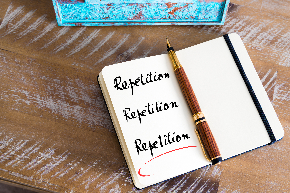 Repetition
Repetition
Repetition